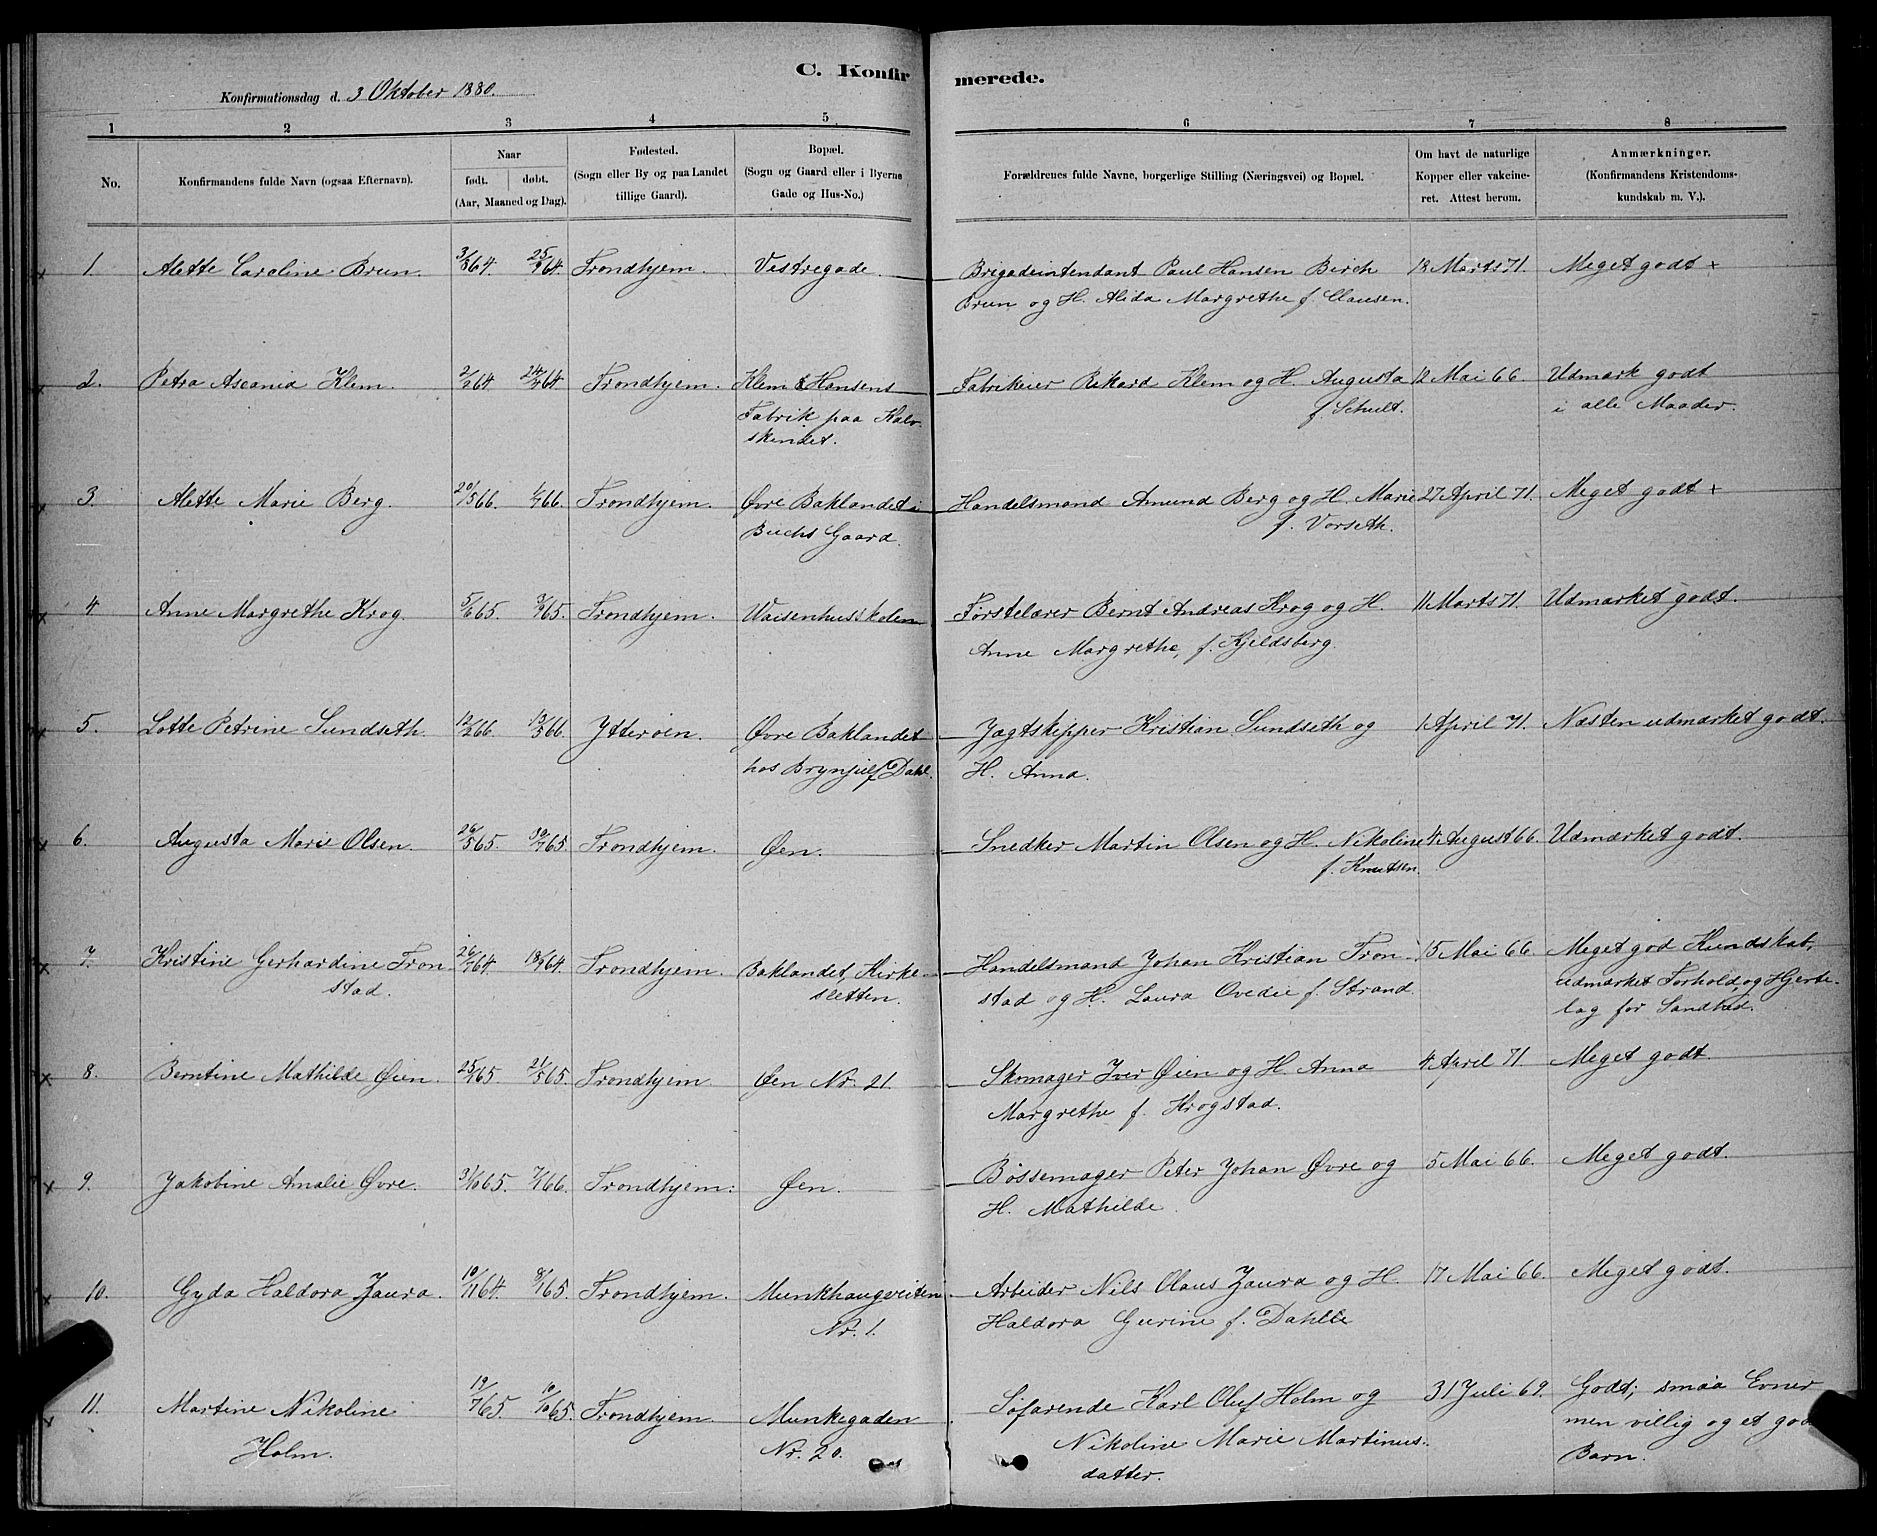 C. Konfirmerede.
Konfirmationsdag d. 3 Oktober 1880.
1 2 3 4 5 6 7 8
No. Konfirmandens fulde Navn (ogsaa Efternavn). Naar født. døbt. (Aar, Maaned og Dag). Fødested. (Sogn eller By og paa Landet tillige Gaard). Bopæl. (Sogn og Gaard eller i Byerne Gade og Hus-No.) Forældrenes fulde Navne, borgerlige Stilling (Næringsvei) og Bopæl. Om havt de naturlige Kopper eller vakcineret. Attest herom. Anmærkninger. (Konfirmandens Kristendomskundskab m. V.).
1. Alette Caroline Brun. Trondhjem. Vestregade. Brigadeintendant Paul Hansen Birch 18 Marts 71. Meget godt +
Brun og H. Alida Margrethe f. Clausen.
2. Petra Ascania Klem. 2/2 64 Trondhjem. Klem & Hansens Fabrikeier Rikard Klem og H. Augusta 12 Mai 66. Udmærk godt
Fabrik paa Kalv- f. Schult. i alle Maader.
skindet.
3. Alette Marie Berg. 20/5 66. 1/7 66. Trondhjem. Øvre Baklandet i Handelsmand Amund Berg og H. Marie 27 April 71. Meget godt +
Buchs Gaard. f. Vorseth.
4 Anne Margrethe Krog. 5/6 65. Trondhjem. Waisenhusskolen Førstelærer Bernt Andreas Krog og H. 11 Marts 71. Udmærket godt.
Anne Margrethe, f. Kjeldsberg.
5. Lotte Petrine Sundseth. 12/2 66. 13/5 66. Ytterøen. Øvre Baklandet Jagtskipper Kristian Sundseth og 1 April 71. Næsten udmærket godt.
hos Brynjulf Dahl. H. Anna.
6. Augusta Marie Olsen. 26/5 65. 30/7 65. Trondhjem. Øen. Snedker Martin Olsen og H. Nikoline 4 August 66. Udmærket godt.
f. Knutsen.
7. Kristine Gerhardine Tron 26/7 64. 18/9 64. Trondhjem. Baklandet, Kirke- Handelsmand Johan Kristian Tron- 15 Mai 66. Meget god Kundskab,
stad. sletten. stad og H. Laura Ovedie f. Strand. udmærket Forhold, og Hjerte-
lag for Sandhed.
8. Berntine Mathilde Øien. 21/5 65. Trondhjem Øen Nr. 21. Skomager Iver Øien og H. Anna 4 April 71. Meget godt.
Margrethe f. Krogstad.
9. Jakobine Amalie Øvre. 31/10 65. 7/1 66. Trondhjem. Øen. Bøssemager Peter Johan Øvre og 5 Mai 66. Meget godt.
H. Mathilde.
10. Gyda Haldora Zaura. 10/11 64. 8/1 65. Trondhjem. Munkhaugveiten Arbeider Nils Olaus Zaura og H. 17 Mai 66. Meget godt.
Nr. 1. Haldora Gurine f. Dahlle
11. Martine Nikoline 19/7 65. 10/10 65. Trondhjem. Munkegaden Søfarende Karl Oluf Holm og 31 Juli 69. Godt; smaa Evner
Holm. Nr. 20. Nikoline Marie Martinus- men villig og et godt
datter. Barn.